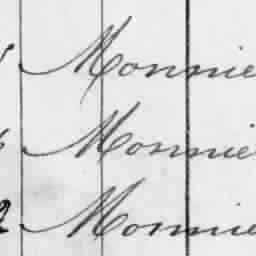 Monnie
Monnie
Monnie